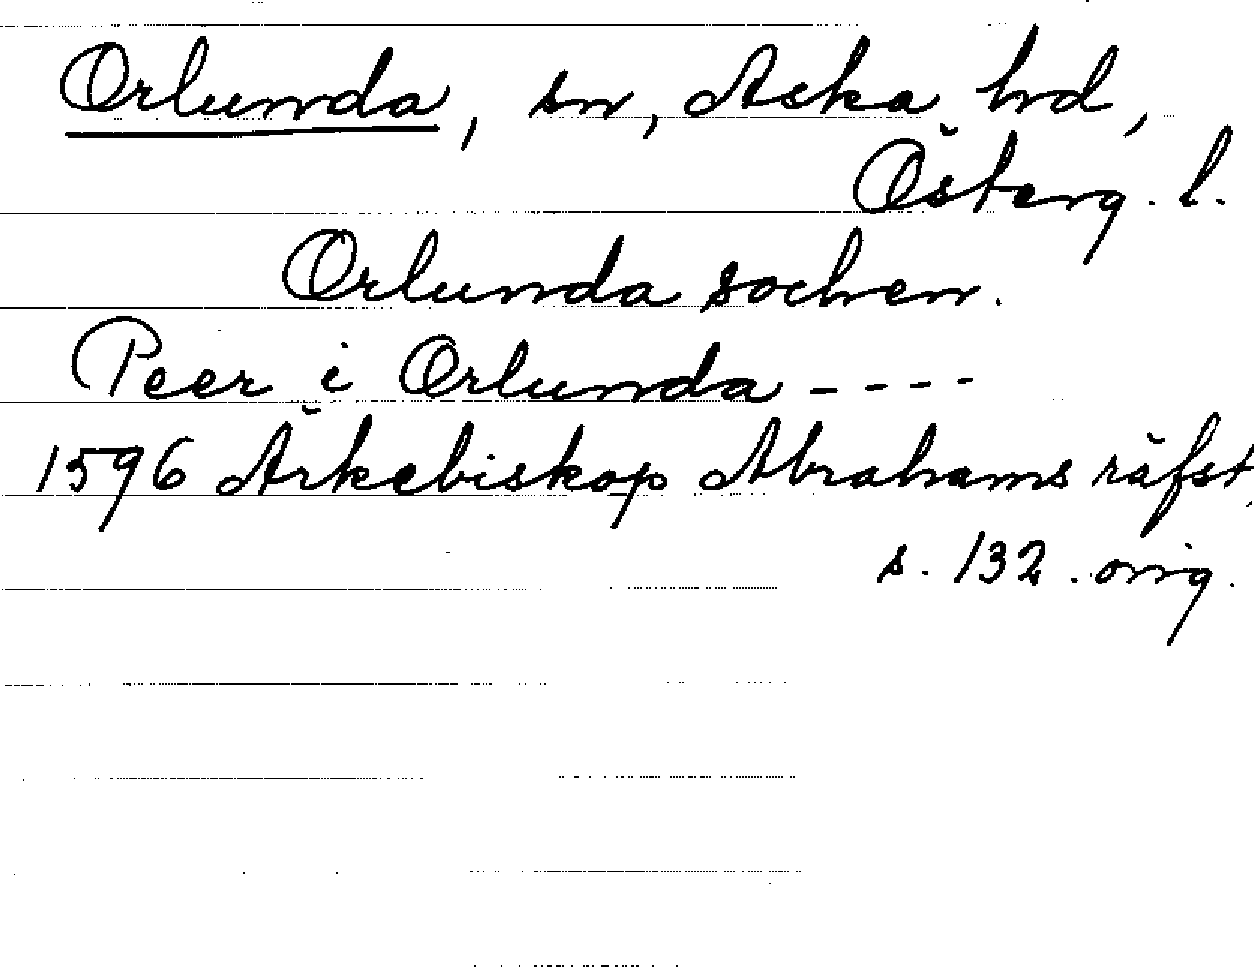 Orlunda, sn, Acka hrd,
Österg. l.
Orlunda sochen.
Peer i Orlunda ----
1596 Ärkebiskop Abrahams räfst,
s. 132. orig.